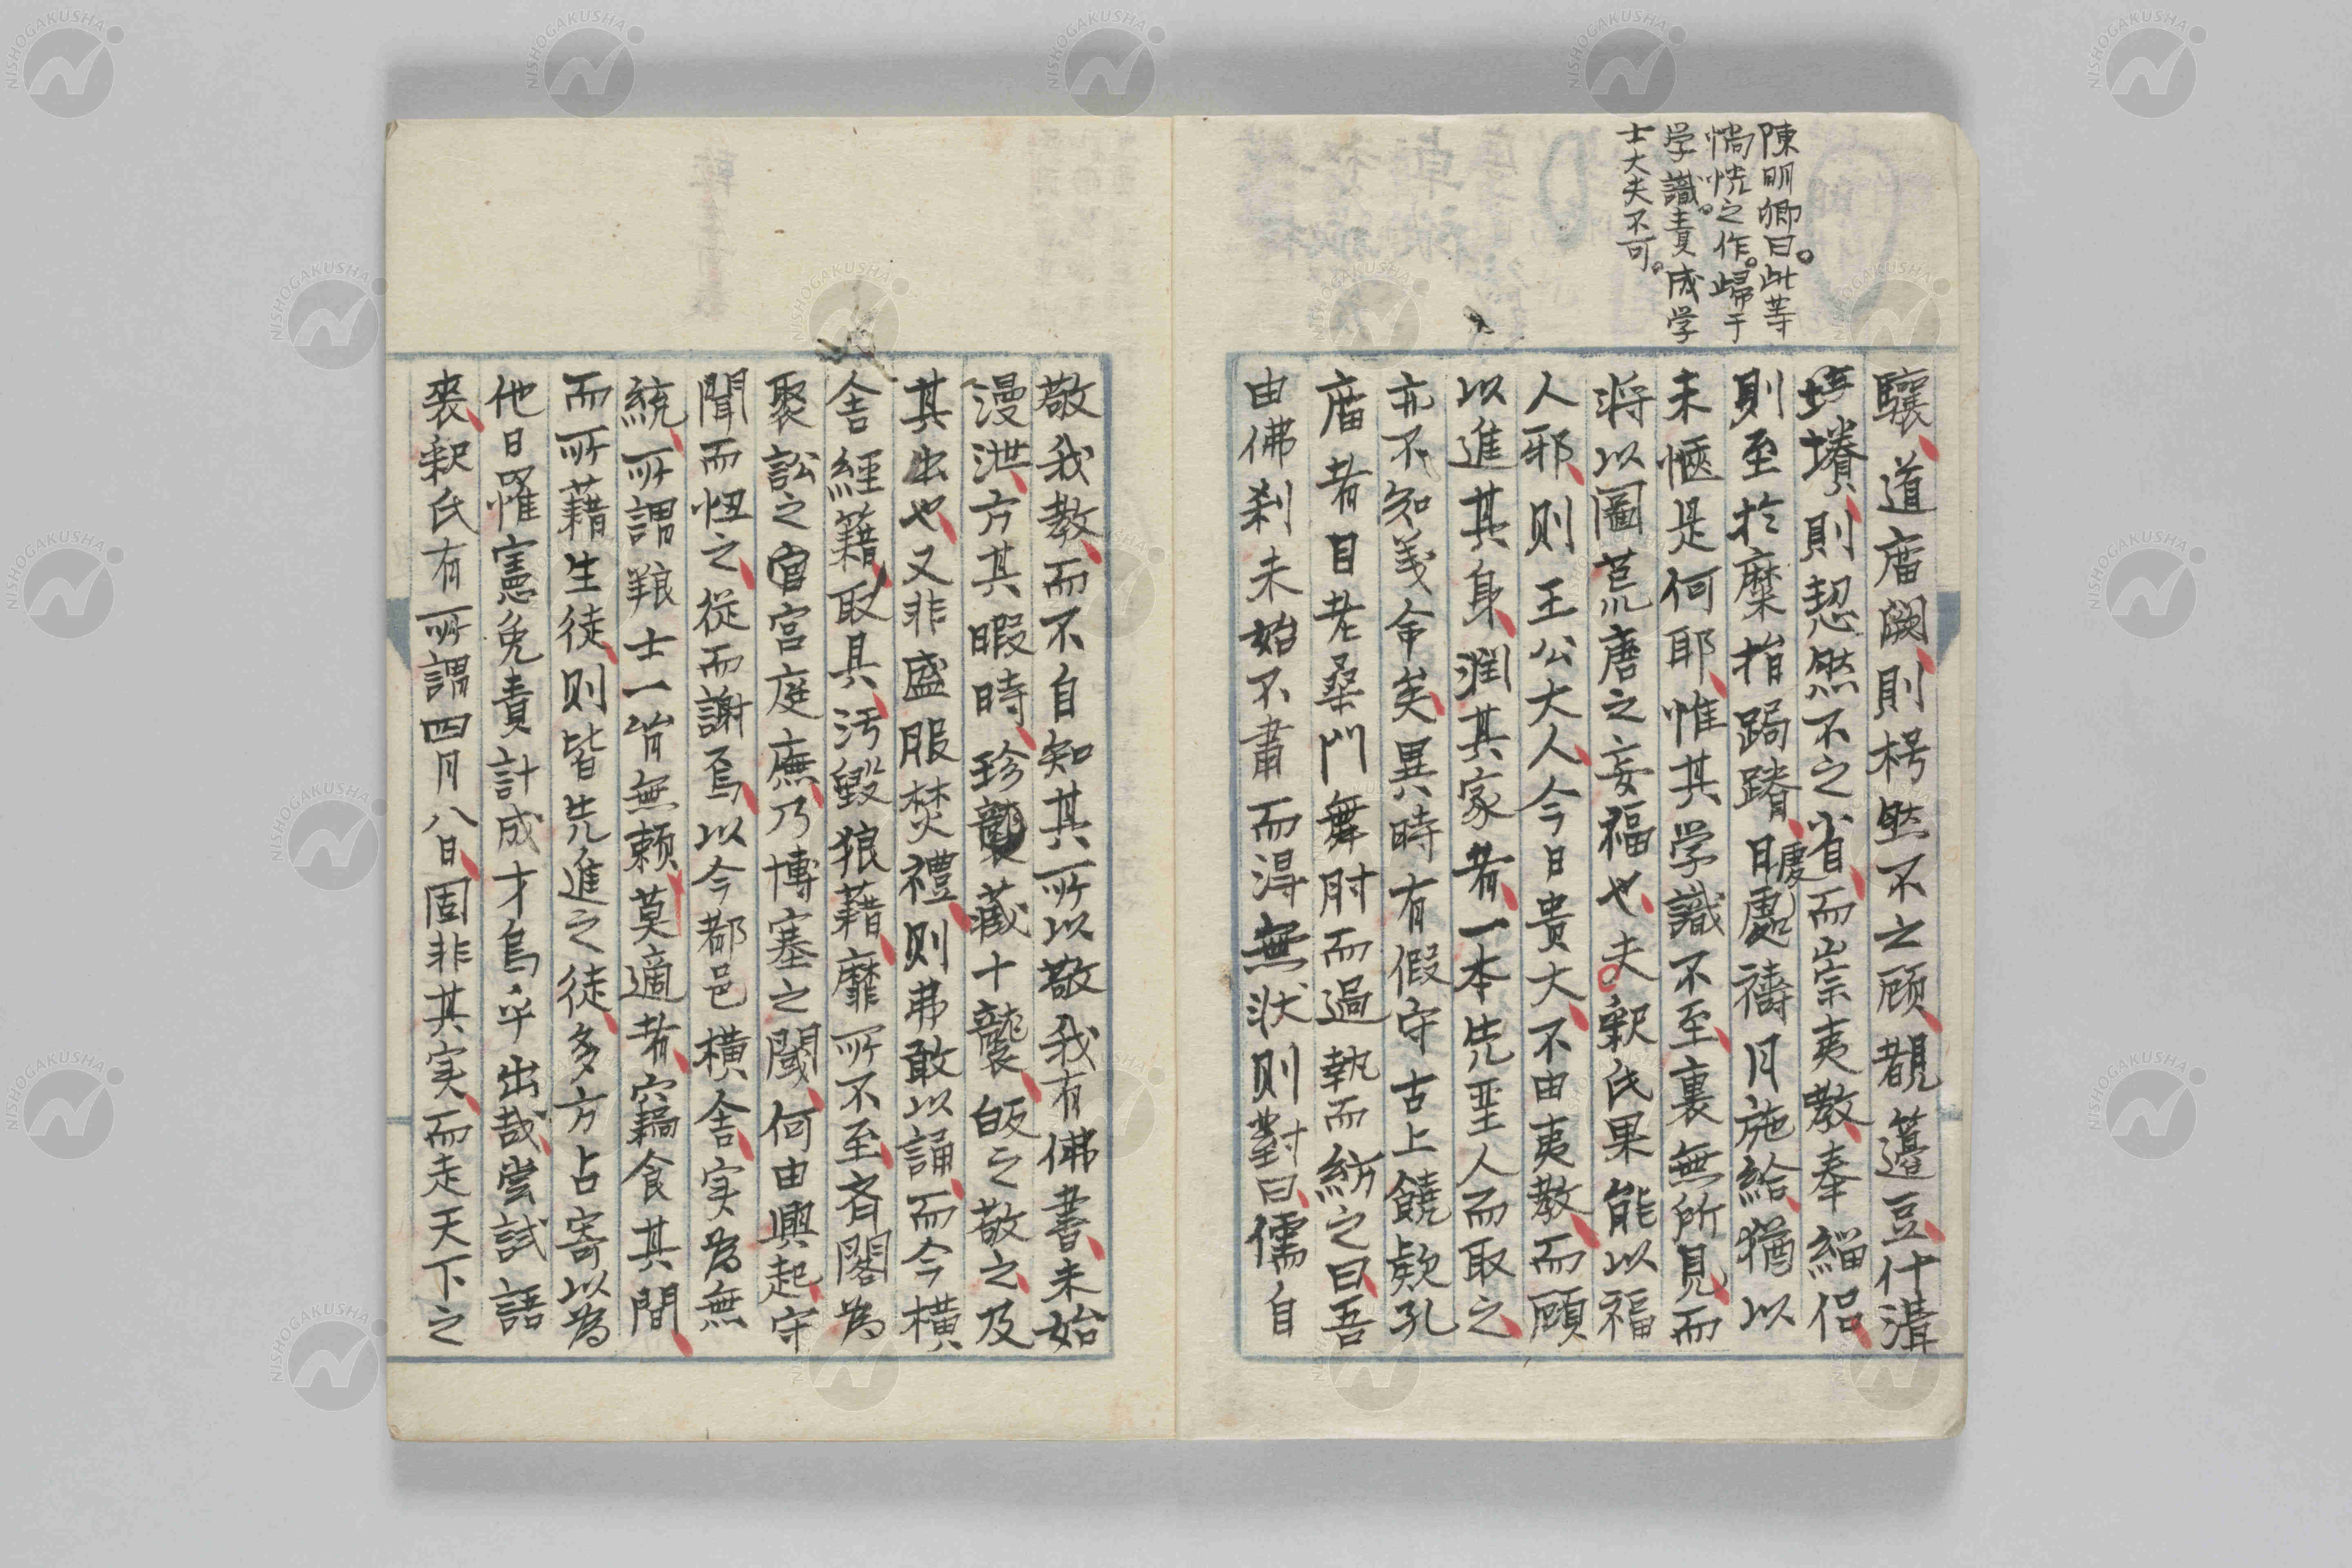 陳明卿曰此等
惝恍之作歸于
学識責成学
士大夫不可
驤道庿闕則枵然不之顧覩籩豆什溝
埒墦則恝然不之省而崇夷教奉緇侣
則至於糜指跼蹐日處禱月施給猶以
未愜是何耶惟其学識不至裏無所見而
将以圖荒唐之妄福也夫釈氏果能以福
人邪则王公大人今日贵大不由夷教而顧
以進其身潤其家者一本先聖人而取之
亦不知義命矣異時有假守古上饒欵孔
庿者目老桑門舞肘而過執而紡之曰吾
由佛刹未始不肅而淂無状则對曰儒自
敬我教而不自知其所以敬我有佛書未始
漫泄方其暇時珍襲藏十襲皈之敬之及
其出也又非盛服焚禮则弗敢以誦而今横
舎經籍取具汚毀狼藉靡所不至斉閣為
聚訟之官宫庭廡乃博塞之閾何由興起守
聞而忸之從而謝焉以今都邑横舎实為無
統所謂粮士一皆無頼莫適者穴藉食其間
而所藉生徒则皆先進之徒多方占寄以為
他日罹憲免責計成才烏乎出哉嘗試語
裘釈氏有所謂四月八日固非其实而走天下之